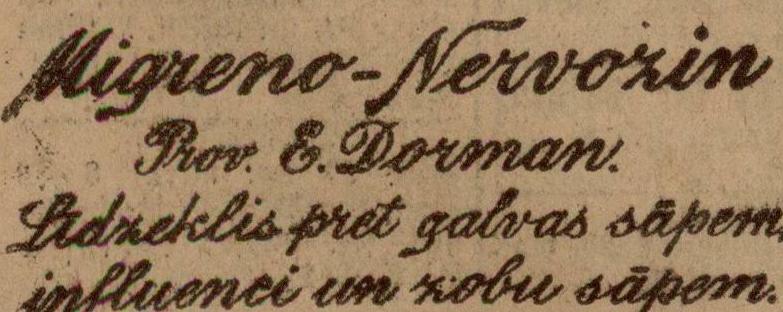 Migreno-Nervozin
Prov. E. Dorman.
Līdzeklis pret galvas sāpem,
influenci un zobu sāpem.